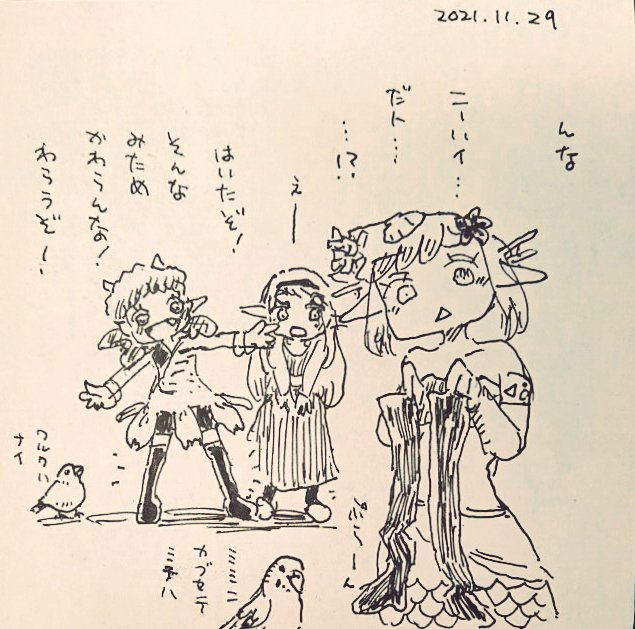 2021.11.29
んな
ニーハイ…
だト…
…!?
えー
はいたぞ!
そんな
みため
かわらんな!
わらうぞー
ワルクハ
ナイ
ぷらーん
ミミニ
カブセテ
ミヨハ